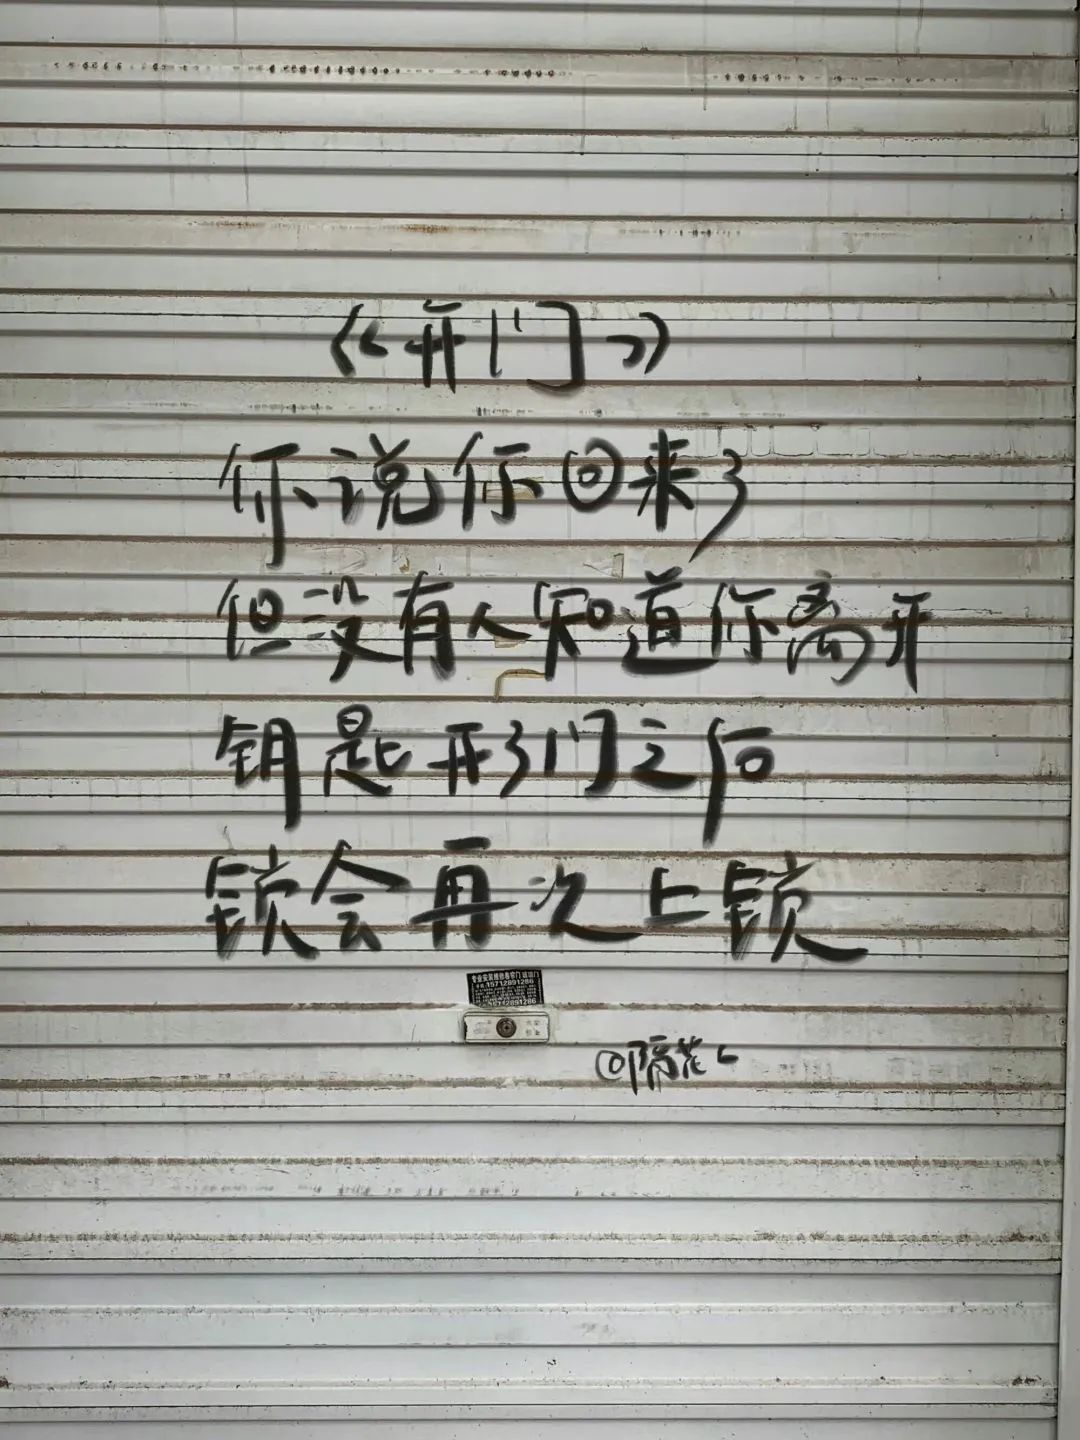 《开门》
你说你回来了
但没有人知道你离开
钥匙开了门之后
锁会再次上锁
15712891286
15712891286
@隔花L